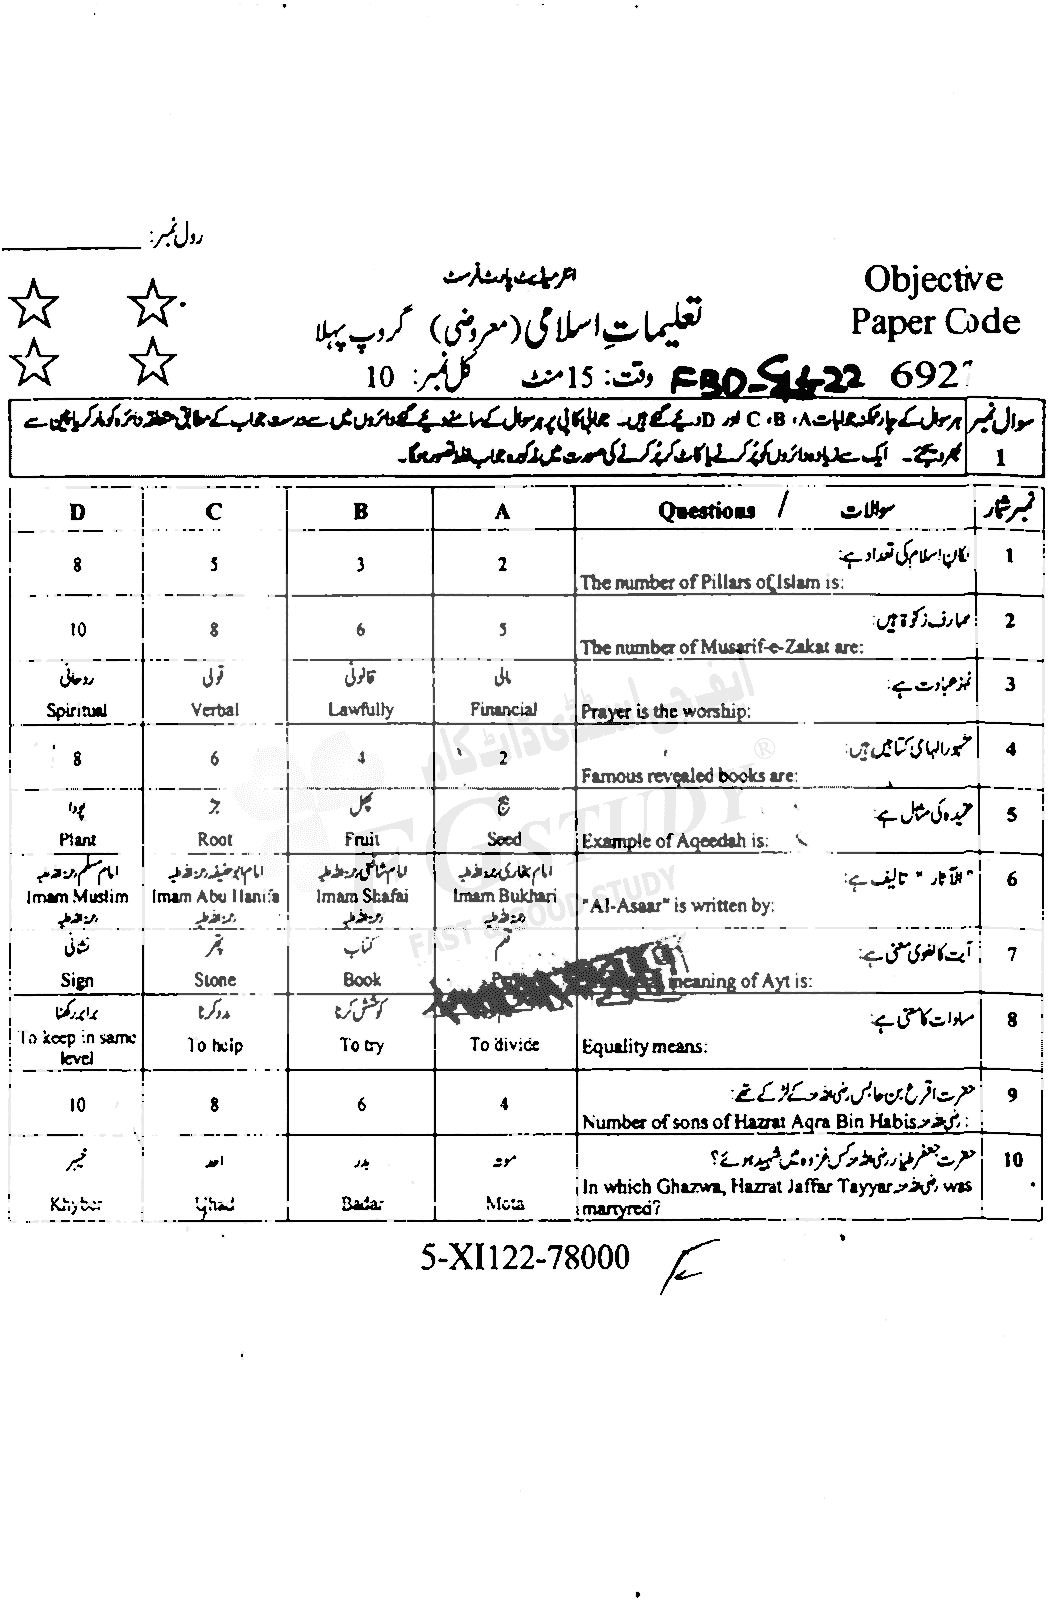 رول نمبر:
Objective
Paper Code
انٹرمیڈیٹ پارٹ فرسٹ
تعلیماتِ اسلامی (معروضی) گروپ پہلا
692
وقت: 15 منٹ کل نمبر: 10
سوال نمبر 1
ہر سوال کے چار ممکنہ جوابات A، B، C اور D دیئے گئے ہیں۔ جوابی کاپی پر ہر سوال کے سامنے دیئے گئے دائروں میں سے درست جواب کے مطابق متعلقہ دائرہ کو مارکر یا پین سے
بھر دیجئے۔ ایک سے زیادہ دائروں کو پُر کرنے یا کاٹ کر پُر کرنے کی صورت میں مذکورہ جواب غلط تصور ہوگا۔
نمبر شمار سوالات / Questions A B C D
1 ارکان اسلام کی تعداد ہے:
The number of Pillars of Islam is: 2 3 5 8
2 مصارف زکوٰۃ ہیں:
The number of Musarif-e-Zakat are: 5 6 8 10
3 نماز عبادت ہے: مالی قانونی قولی روحانی
Prayer is the worship: Financial Lawfully Verbal Spiritual
4 مشہور الہامی کتابیں ہیں:
Famous revealed books are: 2 4 6 8
5 عقیدہ کی مثال ہے: بیج پھل جڑ پودا
Example of Aqeedah is: Seed Fruit Root Plant
6 "الآثار" تالیف ہے: امام بخاری رحمۃ اللہ علیہ امام شافعی رحمۃ اللہ علیہ امام ابو حنیفہ رحمۃ اللہ علیہ امام مسلم رحمۃ اللہ علیہ
"Al-Asaar" is written by: Imam Bukhari Imam Shafai Imam Abu Hanifa Imam Muslim
رحمۃ اللہ علیہ رحمۃ اللہ علیہ رحمۃ اللہ علیہ رحمۃ اللہ علیہ
7 آیت کا لغوی معنی ہے: قسم کتاب پتھر نشانی
meaning of Ayt is: Book Stone Sign
8 مساوات کا معنی ہے: کوشش کرنا مدد کرنا برابر رکھنا
Equality means: To divide To try To help To keep in same level
9 حضرت اقرع بن حابس رضی اللہ عنہ کے لڑکے تھے:
Number of sons of Hazrat Aqra Bin Habis رضی اللہ عنہ: 4 6 8 10
10 حضرت جعفر طیار رضی اللہ عنہ کس غزوہ میں شہید ہوئے؟ موتہ بدر احد خیبر
In which Ghazwa, Hazrat Jaffar Tayyar رضی اللہ عنہ was
martyred? Mota Badar Uhad Khyber
ایف جی اسٹڈی ڈاٹ کام
FGSTUDY®
FAST GOOD STUDY
5-XI122-78000